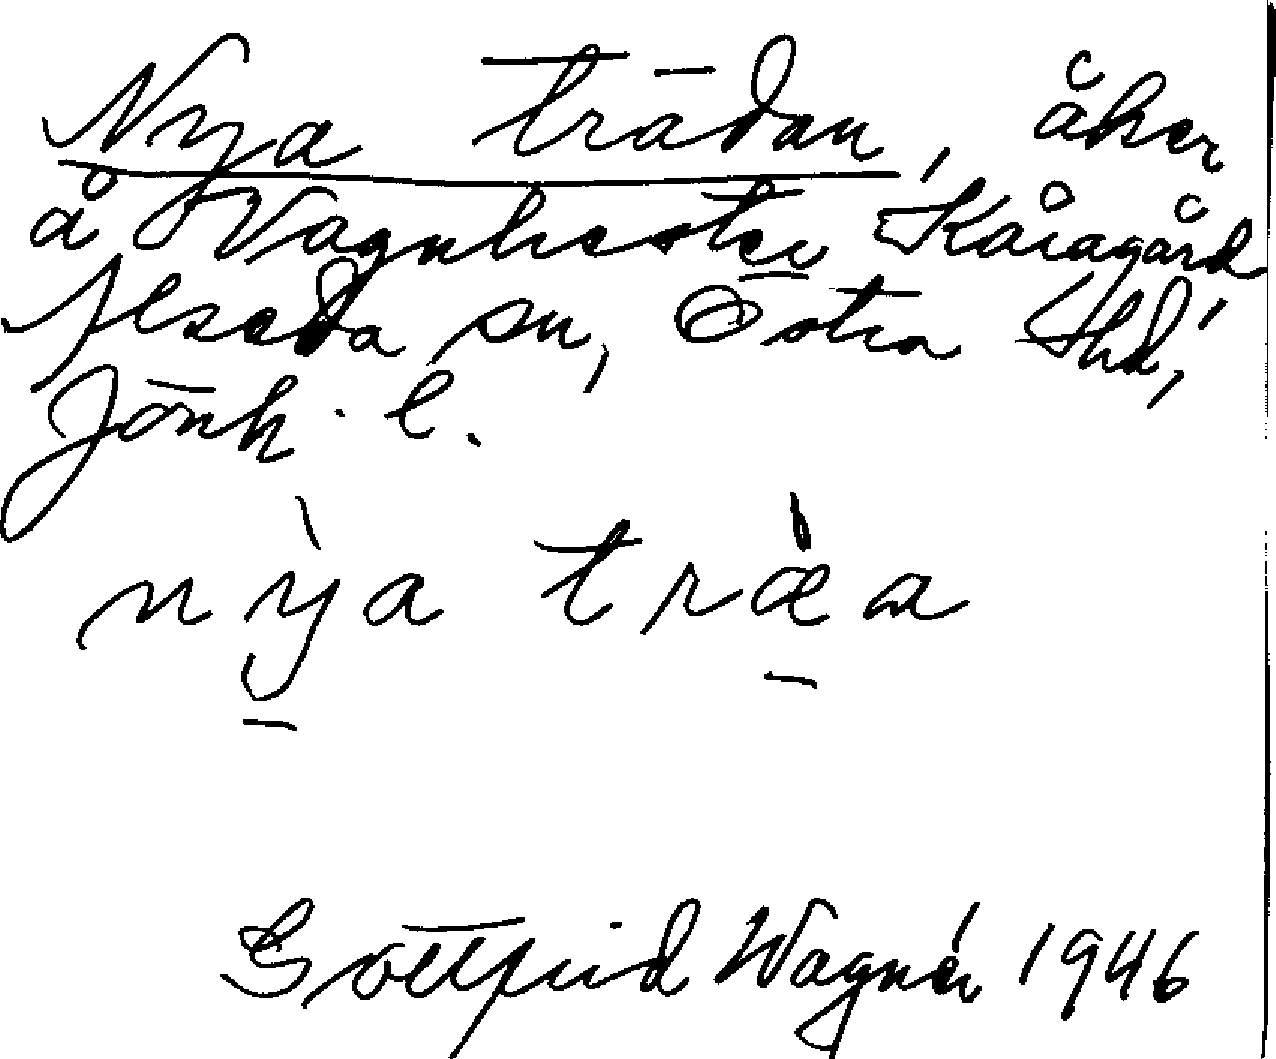 Nya trädan, åker
å Vagnhester Kåragård,
Alseda sn, Östra hd,
Jönk. l.
nỳa træ̀a
Gottfrid Wagnér 1946